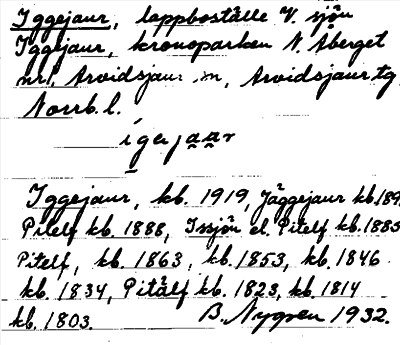 Iggejaur, lappboställe V. sjön
Iggejaur, kronoparken N. Åberget
nr1, Arvidsjaur sn, Arvidsjaur tg
Norrb. l.
igerjaar
Iggejaur, kb. 1919, Jäggejaur kb. 189
Pitelf kb. 1888, Issjön el. Pitelf kb. 1885
Pitelf, kb. 1863, kb. 1853, kb. 1846
kb. 1834, Pitälf kb. 1823, kb. 1814
kb. 1803. B. Nygren 1932.